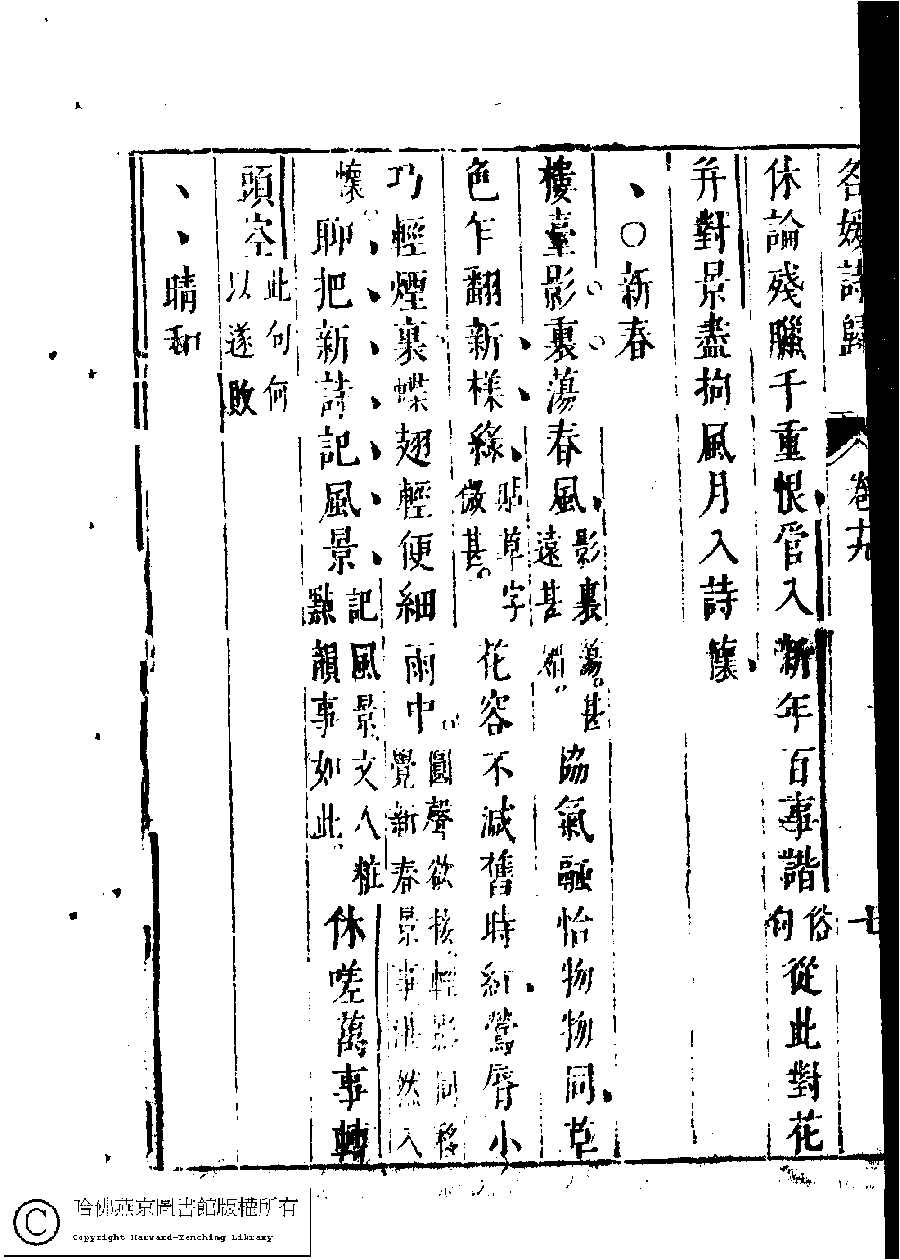 名媛詩歸 卷十九 七
休論殘臘千重恨管入新年百事諧俗句從此對花
并對景盡拘風月入詩懷
新春
樓臺影裏蕩春風影裏蕩甚遠甚媚協氣融怡物物同草
色乍翻新樣綠貼草字儆甚花容不減舊時紅鶯唇小
巧輕煙裏蝶翅輕便細雨中圓聲欲接輕影同移覺新春景事湛然入
懷聊把新詩記風景記風景文人粧點韻事如此休嗟萬事轉
頭空此句何以遂敗
晴和
哈佛燕京圖書館版權所有
Copyright Harvard-Yenching Library